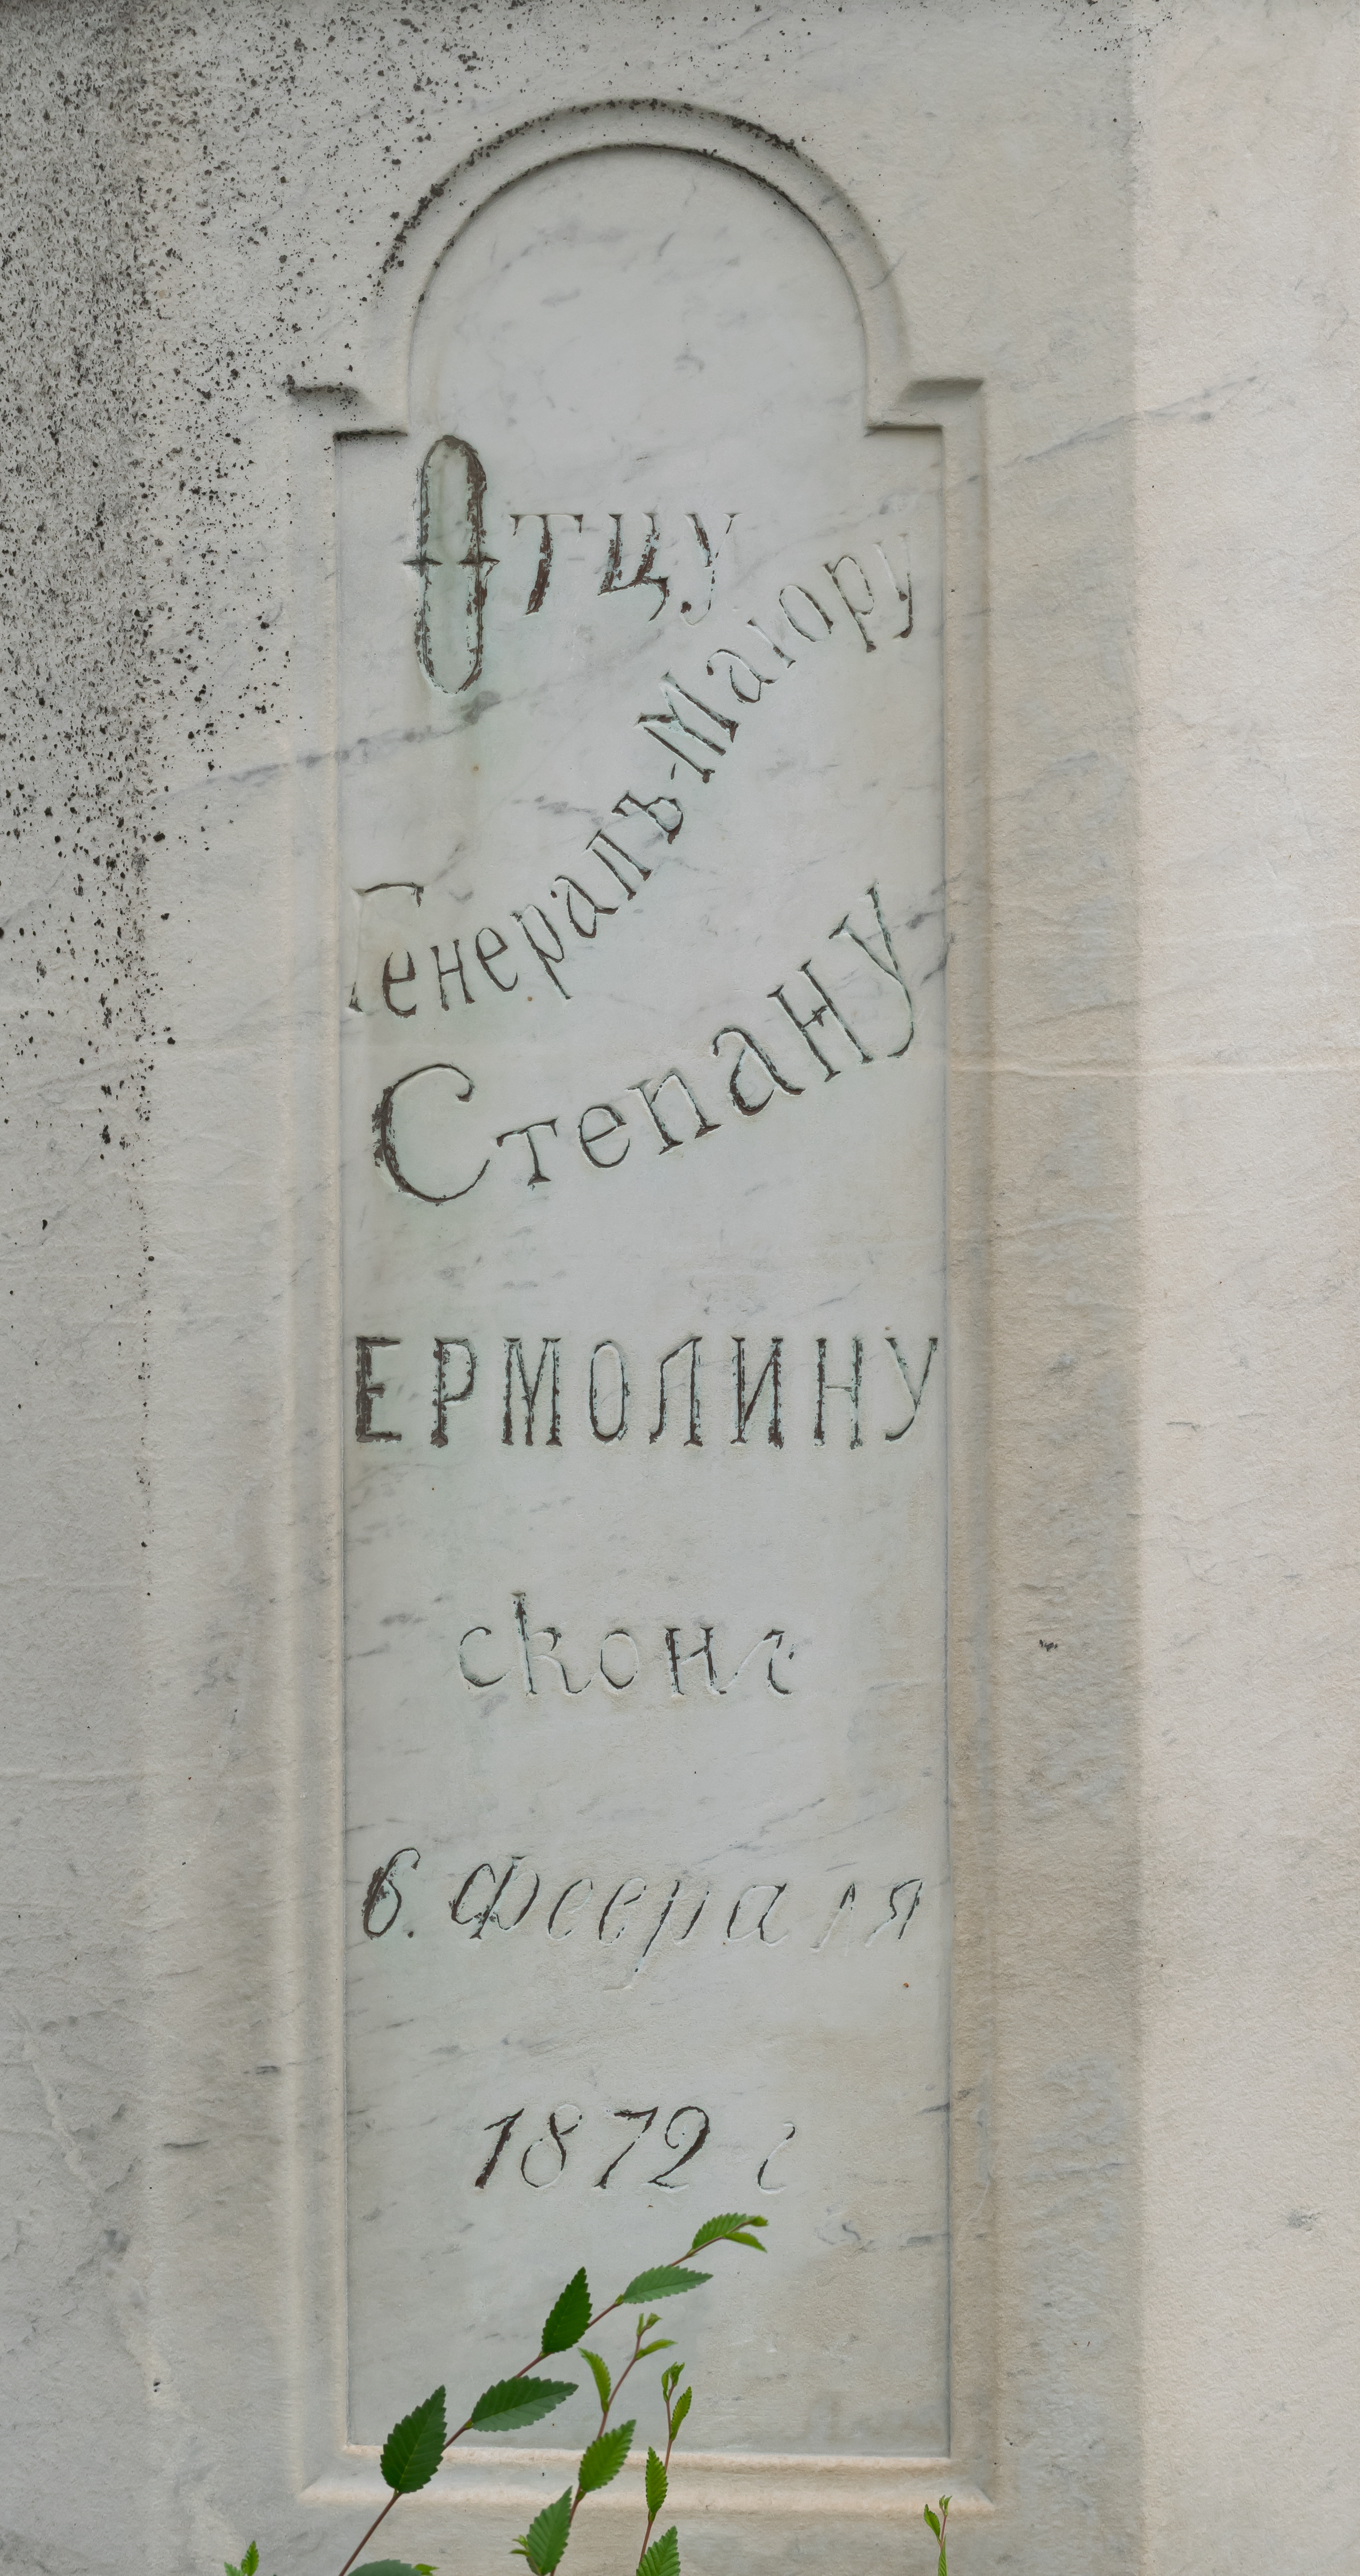 Отцу
Генералъ-Маіору
Степану
ЕРМОЛИНУ
сконч
6. Февраля
1872 г